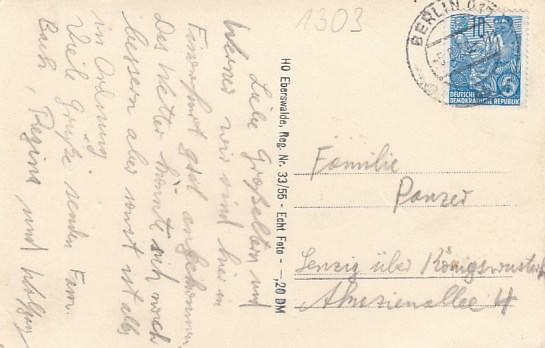 1303
Liebe Großeltern und
Werner wir sind hier in
gut angekommen.
Das Wetter könnte sich noch
bessern aber sonst ist alles
in Ordnung
Viele Grüße senden Fam.
Regina und
HO Eberswalde, Reg. Nr. 33/55 - Echt Foto - —,20 DM
BERLIN
10
DEUTSCHE
DEMOKRATISCHE REPUBLIK
5
Familie
Panzer
Senzig über Königswusterh
Akazienallee 4